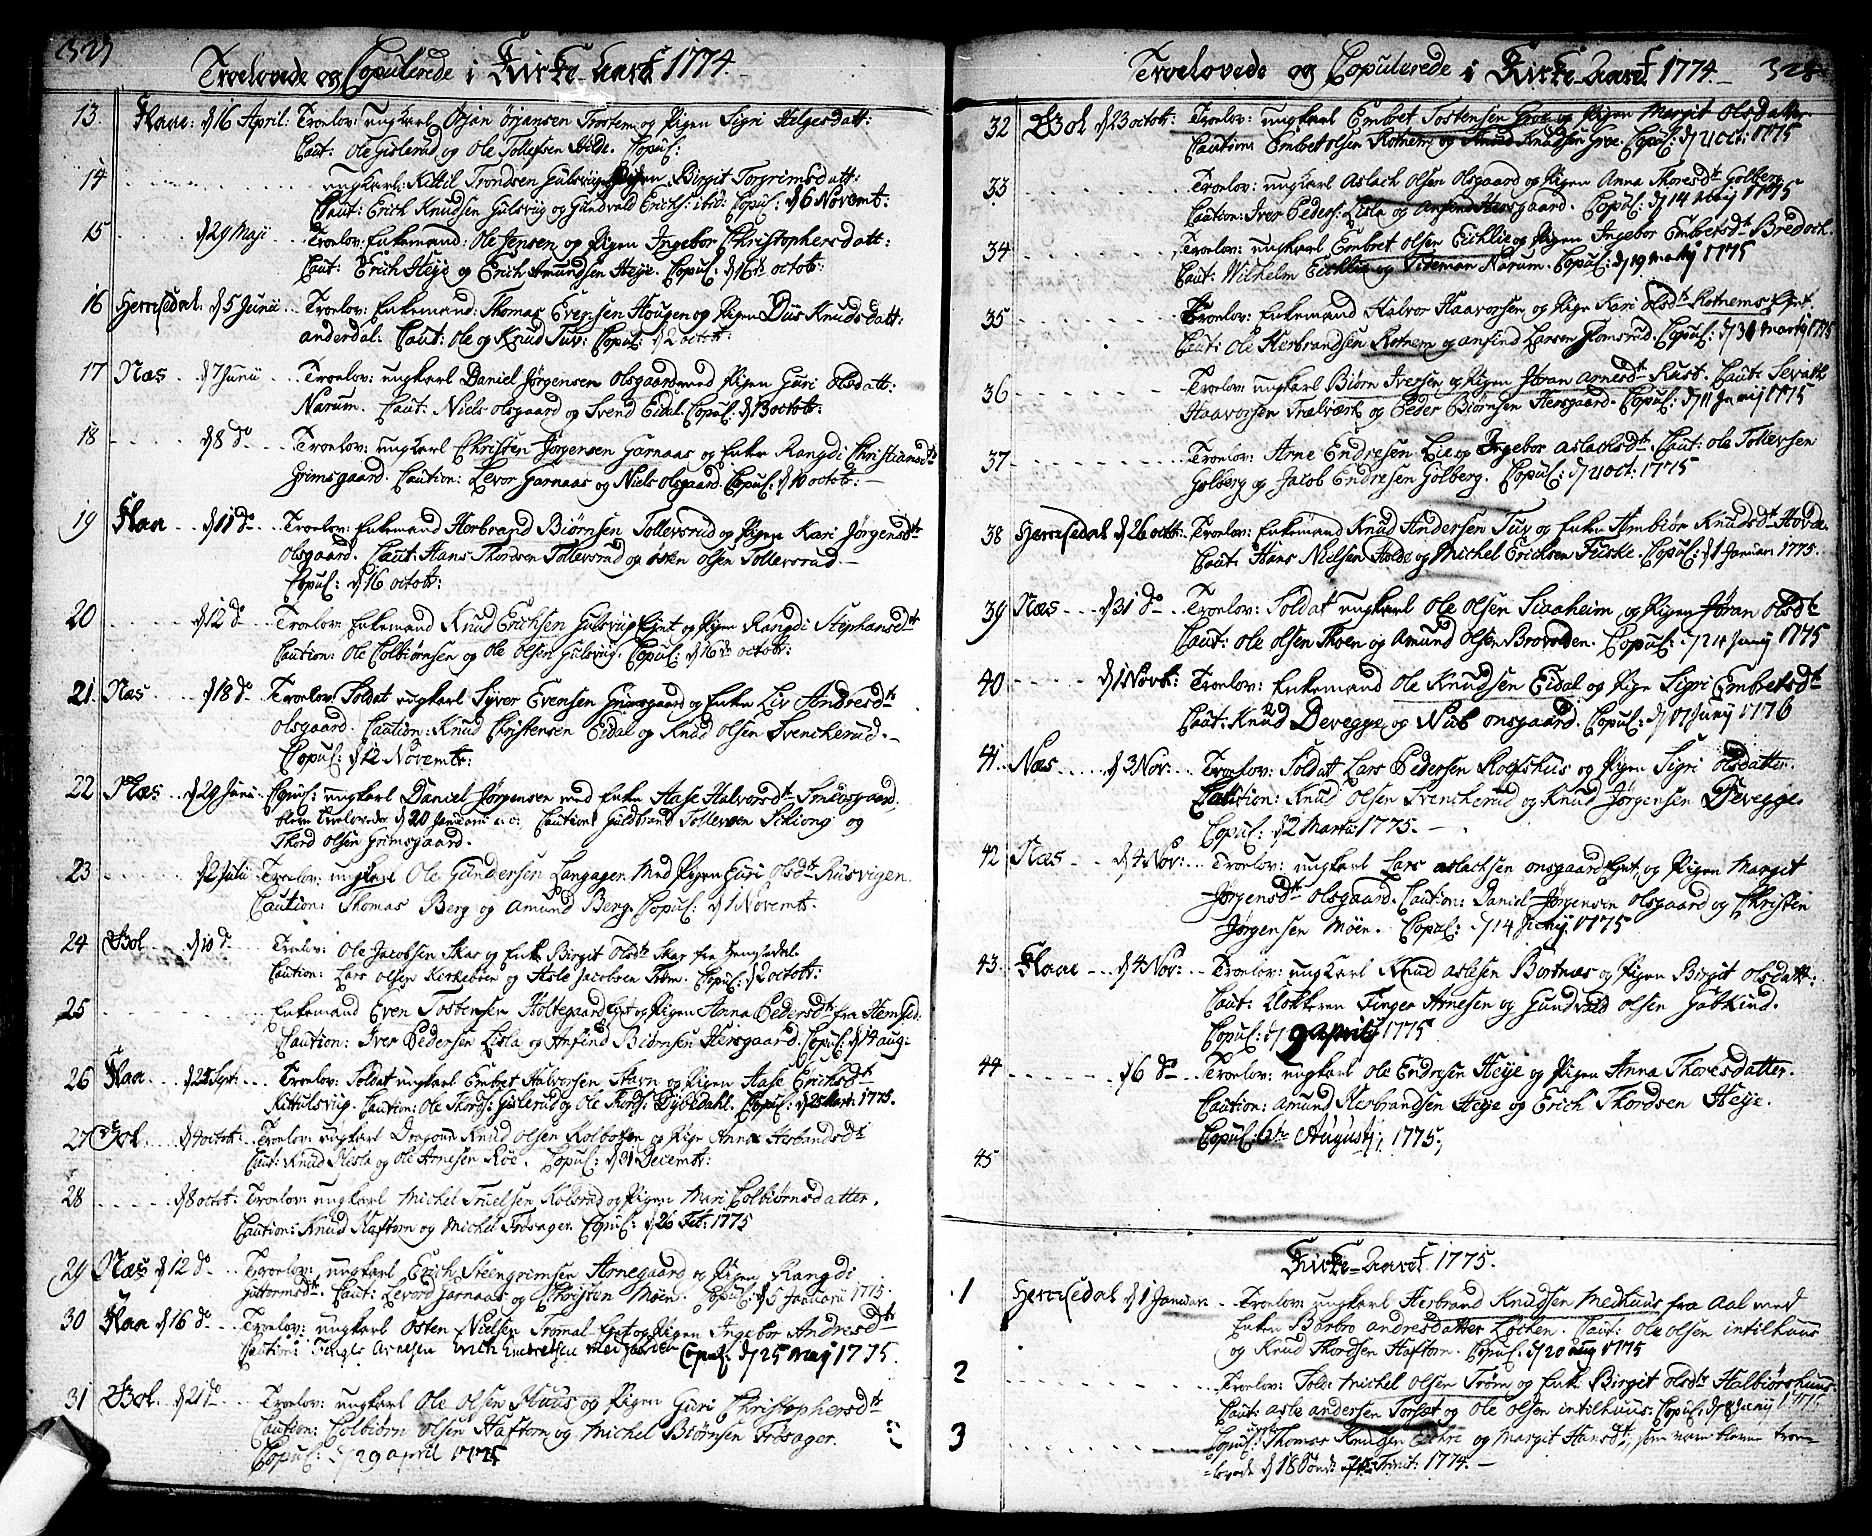 323
Troelovede og Copulerede i Kirke-Aaret 1774.
13. Flaae: d 16 April: Troelov: ungkarl Ørjan Ørjansen Trostem og Pigen Sigri Helgesdatt:
Caut: Ole Gislerud og Ole Tollefsen Hilde. Copul:
14 ungkarl: Kittil Trondsen Gulsvig Pigen Birgit Torgrimsdatt:
Caut: Erich Knudsen Gulsviig og Gundvald Erichs: ibid: Copul: d 6 Novembr:
15 d 29 Maji Troelov: Enkemand: Ole Jensen og Pigen Ingebor Christophersdatt:
Caut: Erich Heje og Erich Amundsen Heje. Copul: d 16 octobr:
16 Hemsedal. d 5 Junii Troelov: Enkemand: Thomas Evensen Hougen og Pigen Dus Knudsdatt:
anderdal: Caut: Ole og Knud Tuv: Copul: d 2 octobr:
17 Næs d 7 Junii Troelov: ungkarl Daniel Jørgensen Olsgaard med Pigen Guri Olsdatt:
Narum. Caut: Niels Olsgaard og Svend Eidal. Copul: d 13 octobr:
18 d 8 do Troelov: ungkarl Christen Jørgensen Garnaas og Enke Rangdi Christiansdtr
Grimsgaard. Caution: Levor Garnaas og Niels Olsgaard. Copul: d 10 octobr:
19 Flaa d 11 do Troelov: Enkemand Herbrand Biørnsen Tollevsrud og Pigen Kari Jørgensdtr
Olsgaard. Caut: Hans Thordsen Tollevsrud og Osten Olsen Tollevsrud.
Copul: d 16 octobr:
20 d 12 do Troelov: Enkemand Knud Erichsen Gulsvig Eget og Pigen Rangdi Stephansdtr
Caution: Ole Colbiørnsen og Ole Olsen Gulsvig. Copul: d 16 octobr:
21. Næs d 18 do Troelov: Soldat ungkarl Syver Evensen Grimsgaard og Enke Liv Andresdtr
Olsgaard. Caution: Knud Christensen Eidal og Knud Olsen Svenckerud.
Copul: d 12 Novembr:
22 Næs d 29 Junii Copul: ungkarl Daniel Jørgensen med Enke Aase Halvorsdtr Smedsgaard,
bleve Troelovede d 20 Januarii a: c: Caution: Guldbrand Tollevsen Schiong og
Thord Olsen Grimsgaard.
23 d 2 Julii Troelov: ungkarl Ole Gundersen Langagen Med Pigen Guri Olsdtr Rusvigen.
Caution: Thomas Berg og Amund Berg. Copul: d 1 Novembr.
24 Gol d 10 d Troelov: Ole Jacobsen Skar og Enke Birgit Olsdtr Skar fra Hemsedal
Caution: Lars Olsen Kirkebøen og Asle Jacobsen Trøm. Copul: d 2 octobr:
25 Enkemand Even Tostensen Holtegaard Eget og Pigen Anna Pedersdtr fra Hemsed:
Caution: Iver Pedersen Lisla og Anfind Biørnsen Hersgaard. Copul: d 14 aug:
26 Flaa d 25 Sept: Troelov: Soldat ungkarl Embret Halvorsen Stavn og Pigen Aase Erichsdtr
Kittilsviig. Caution: Ole Thords: Gislerud og Ole Thords: Dybedahl. Copul: d 25 Mart: 1775.
27 Gol d 4 octob: Troelov: ungkarl Dragoun Knud Olsen Rolbosen og Pige Anne Hobrandsdtr
Caut: Knud Nesla og Ole Arnesen Røe. Copul: d 31 Decembr:
28 d 8 octob: Troelov: ungkarl Michel Truelsen Kolsrud og Pigen Mari Colbiørnsdatter.
Caution: Knud Haftorn og Michel Trosager. Copul: d 26 Feb: 1775
29 Næs d 12 do Troelov: ungkarl Erich Steengrimsen Arnegaard og Pigen Rangdi
Guttormsdtr. Caut: Levord Garnaas og Christen Moen. Copul: d 5 Januarii 1775.
30 Flaa d 16 do Troelov: ungkarl Osten Nielsen Tromal Eget og Pigen Ingebor Andresdtr
Caution: Finger Arnesen Copul: d 25 Maij 1775.
31 Gol d 21 do Troelov: ungkarl Ole Olsen Huus og Pigen Guri Christophersdtr
Caution: Colbiørn Olsen Haftorn og Michel Biørnsen Trosager.
Copul: d 29 april 1775
Troelovede og Copulerede i Kirke-Aaret 1774. 324
32 Gol d 23 octob: Troelov: ungkarl Embret Tostensen Groe og Pigen Margit Olsdatter
Caution: Embret Olsen Rotnem og Amud Knudsen Groe. Copul: d 1 oct: 1775
33 Troelov: ungkarl Aslach Olsen Olsgaard og Pigen Anna Thoresdtr Golberg
Caution: Iver Peders: Lisla og Anfind Hersgaard. Copul: d 14 Maij 1775
34 Troelov: ungkarl Embret Olsen Eichlie og Pigen Ingebor Embretsdtr Bredoch.
Caut: Wilhelm Eichlie og Videman Narum. Copul: d 19 Martij 1775
35 Troelov: Enkemand Halvor Haavorsen og Pige Kari Olsdtr Rotnems Eget
Caut: Ole Herbrandsen Rotnem og Anfind Larsen Glomsrud. Copul: d 31 Martij 1775
36 Troelov: ungkarl Biørn Iversen og Pigen Jøran Arnesdtr Rust. Caut: Sevath
Haavorsen Trælværk og Peder Biørnsen Hersgaard. Copul: d 11 Junij 1775
37 Troelov: Arne Endresen Lie og Ingebor Aslachsdtr. Caut: Ole Tollevsen
Golberg og Jacob Endresen Golberg. Copul: d 1 oct: 1775
38 Hemsedal d 26 octobr: Troelov: Enkemand Knud Andersen Tuv og Enke Ambiør Knudsdtr Hovde.
Caut: Hans Nielsen Holde og Michel Erichsen Fuske. Copul: d 1 Januar: 1775.
39 Næs d 31 do Troelov: Soldat ungkarl Ole Olsen Siaaheim og Pigen Jøran Olsdtr
Caut: Ole Olsen Thoen og Amund Olsen Brovolden. Copul: d 24 Junij 1775
40 d 1 Novb: Troelov: Enkemand Ole Knudsen Eidal og Pige Sigri Embretsdtr
Caut: Knud Devegge og Nub onsgaard. Copul: d 17 Junij 1776
41. Næs d 3 Nov: Troelov: Soldatt Lars Pedersen Roefshus og Pigen Sigri Olsdatter.
Caution: Knud Olsen Svenckerud og Knud Jørgensen Devegge.
Copul: d 2 Martii 1775.
42 Næs d 4 Nov: Troelov: ungkarl Lars Aslachsen onsgaard Eget, og Pigen Margit
Jørgensdtr Olsgaard. Caution: Daniel Jørgensen Olsgaard og Christen
Jørgensen Möen. Copul: d 14 1775
43. Flaae d 4 Nov: Troelov: ungkarl Knud Aslesen Bortnæs og Pigen Birgit Olsdatt:
Caut: Klokkeren Finger Arnesen og Gundvald Olsen Gulkind.
Copul: d 9 Aprilij 1775
44 d 6 do Troelov: ungkarl Ole Endresen Heje og Pigen Anna Thoresdatter.
Caution: Amund Herbrandsen Heje og Erich Thordsen Heje.
Copul: 6te Augustij, 1775,
45
Kirke-Aaret 1775.
1 Hemsedal d 1 Januari Troelov: ungkarl Herbrand Knudsen Medhuus fra Aal med
Enken Barbro Andresdatter Løchen. Caut: Ole Olsen intilhuus
og Knud Thordsen Haftorn. Copul: d 20 aug 1775
2 Troelov: Sold: Michel Olsen Trøm og Enk Birgit Olsdtr Halbiørnhuus:
Caut: Asle Andersen Torset og Ole Olsen intilhuus: Copul: d 8 Janij 1775.
3 Copul: Thomas Knudsen Eichre og Margit Hansdtr, som vare bleven troe-
lovede d 18 Sønd: aft: Trinit: 1774.